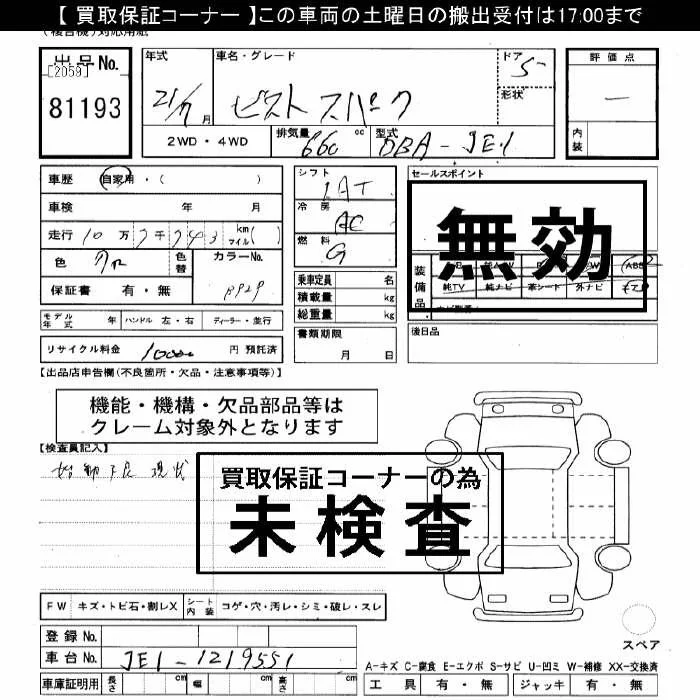 【 買取保証コーナー 】この車両の土曜日の搬出受付は17:00まで
(複合機)対応用紙
出品No.
[2059]
81193
年式
21/7月
車名・グレード
ゼスト スパーク
ドア 5
形状
評価点
—
内装
2WD・4WD
排気量 660 cc
型式 DBA-JE1
車歴 自家用・( )
車検 年 月
走行 10万7千743 km マイル( )
色 色替
カラーNo.
保証書 有・無
モデル年式 年 ハンドル 左・右 ディーラー・並行
リサイクル料金 円 預託済
シフト IAT
冷房 AC
燃料 G
乗車定員 名
積載量 kg
総重量 kg
書類期限
月 日
セールスポイント
無効
装備品
ABS
純TV 純ナビ 革シート 外ナビ エアB
後日品
【出品店申告欄(不良箇所・欠品・注意事項等)】
機能・機構・欠品部品等は
クレーム対象外となります
【検査員記入】
始動不良 現状
買取保証コーナーの為
未検査
FW キズ・トビ石・割レX シート内装 コゲ・穴・汚レ・シミ・破レ・スレ
スペア
登録No.
車台No. JE1-1219551
車庫証明用 長さ cm 幅 cm 高さ cm
A-キズ C-腐食 E-エクボ S-サビ U-凹ミ W-補修 XX-交換済
工具 有・無 ジャッキ 有・無